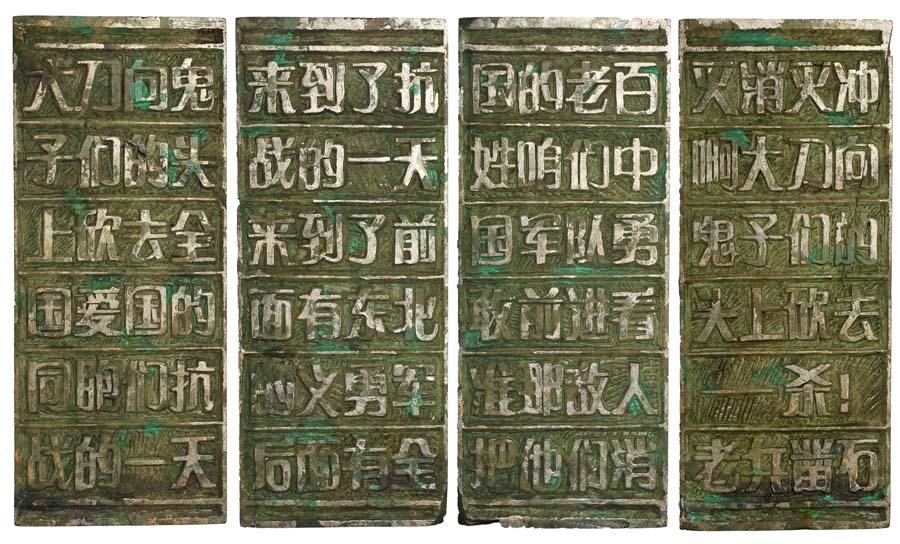 大刀向鬼
子们的头
上砍去全
国爱国的
同胞们抗
战的一天
来到了抗
战的一天
来到了前
面有东北
的义勇军
后面有全
国的老百
姓咱们中
国军队勇
敢前进看
准那敌人
把他们消
灭消灭冲
啊大刀向
鬼子们的
头上砍去
一杀!
老兵凿石